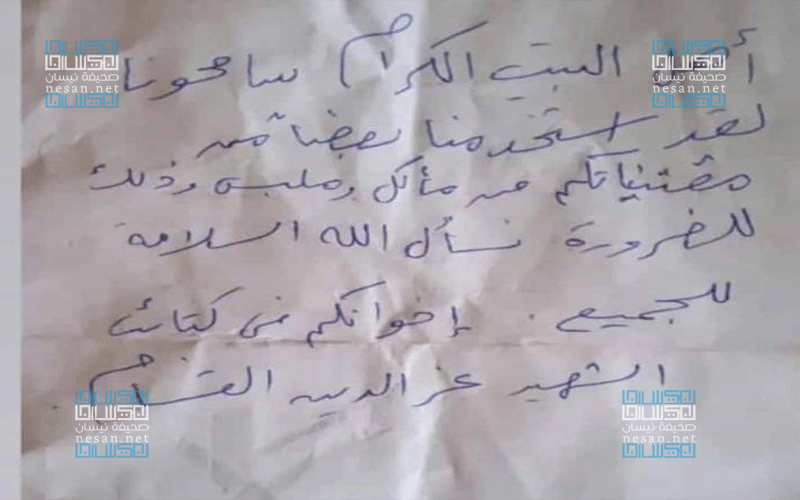 أهل البيت الكرام سامحونا
لقد استخدمنا بعضا من
مقتنياتكم من مأكل وملبس وذلك
للضرورة نسأل الله السلامة
للجميع. إخوانكم في كتائب
الشهيد عز الدين القسام.
صحيفة نيسان
nesan.net
صحيفة نيسان
nesan.net
صحيفة نيسان
nesan.net
صحيفة نيسان
nesan.net